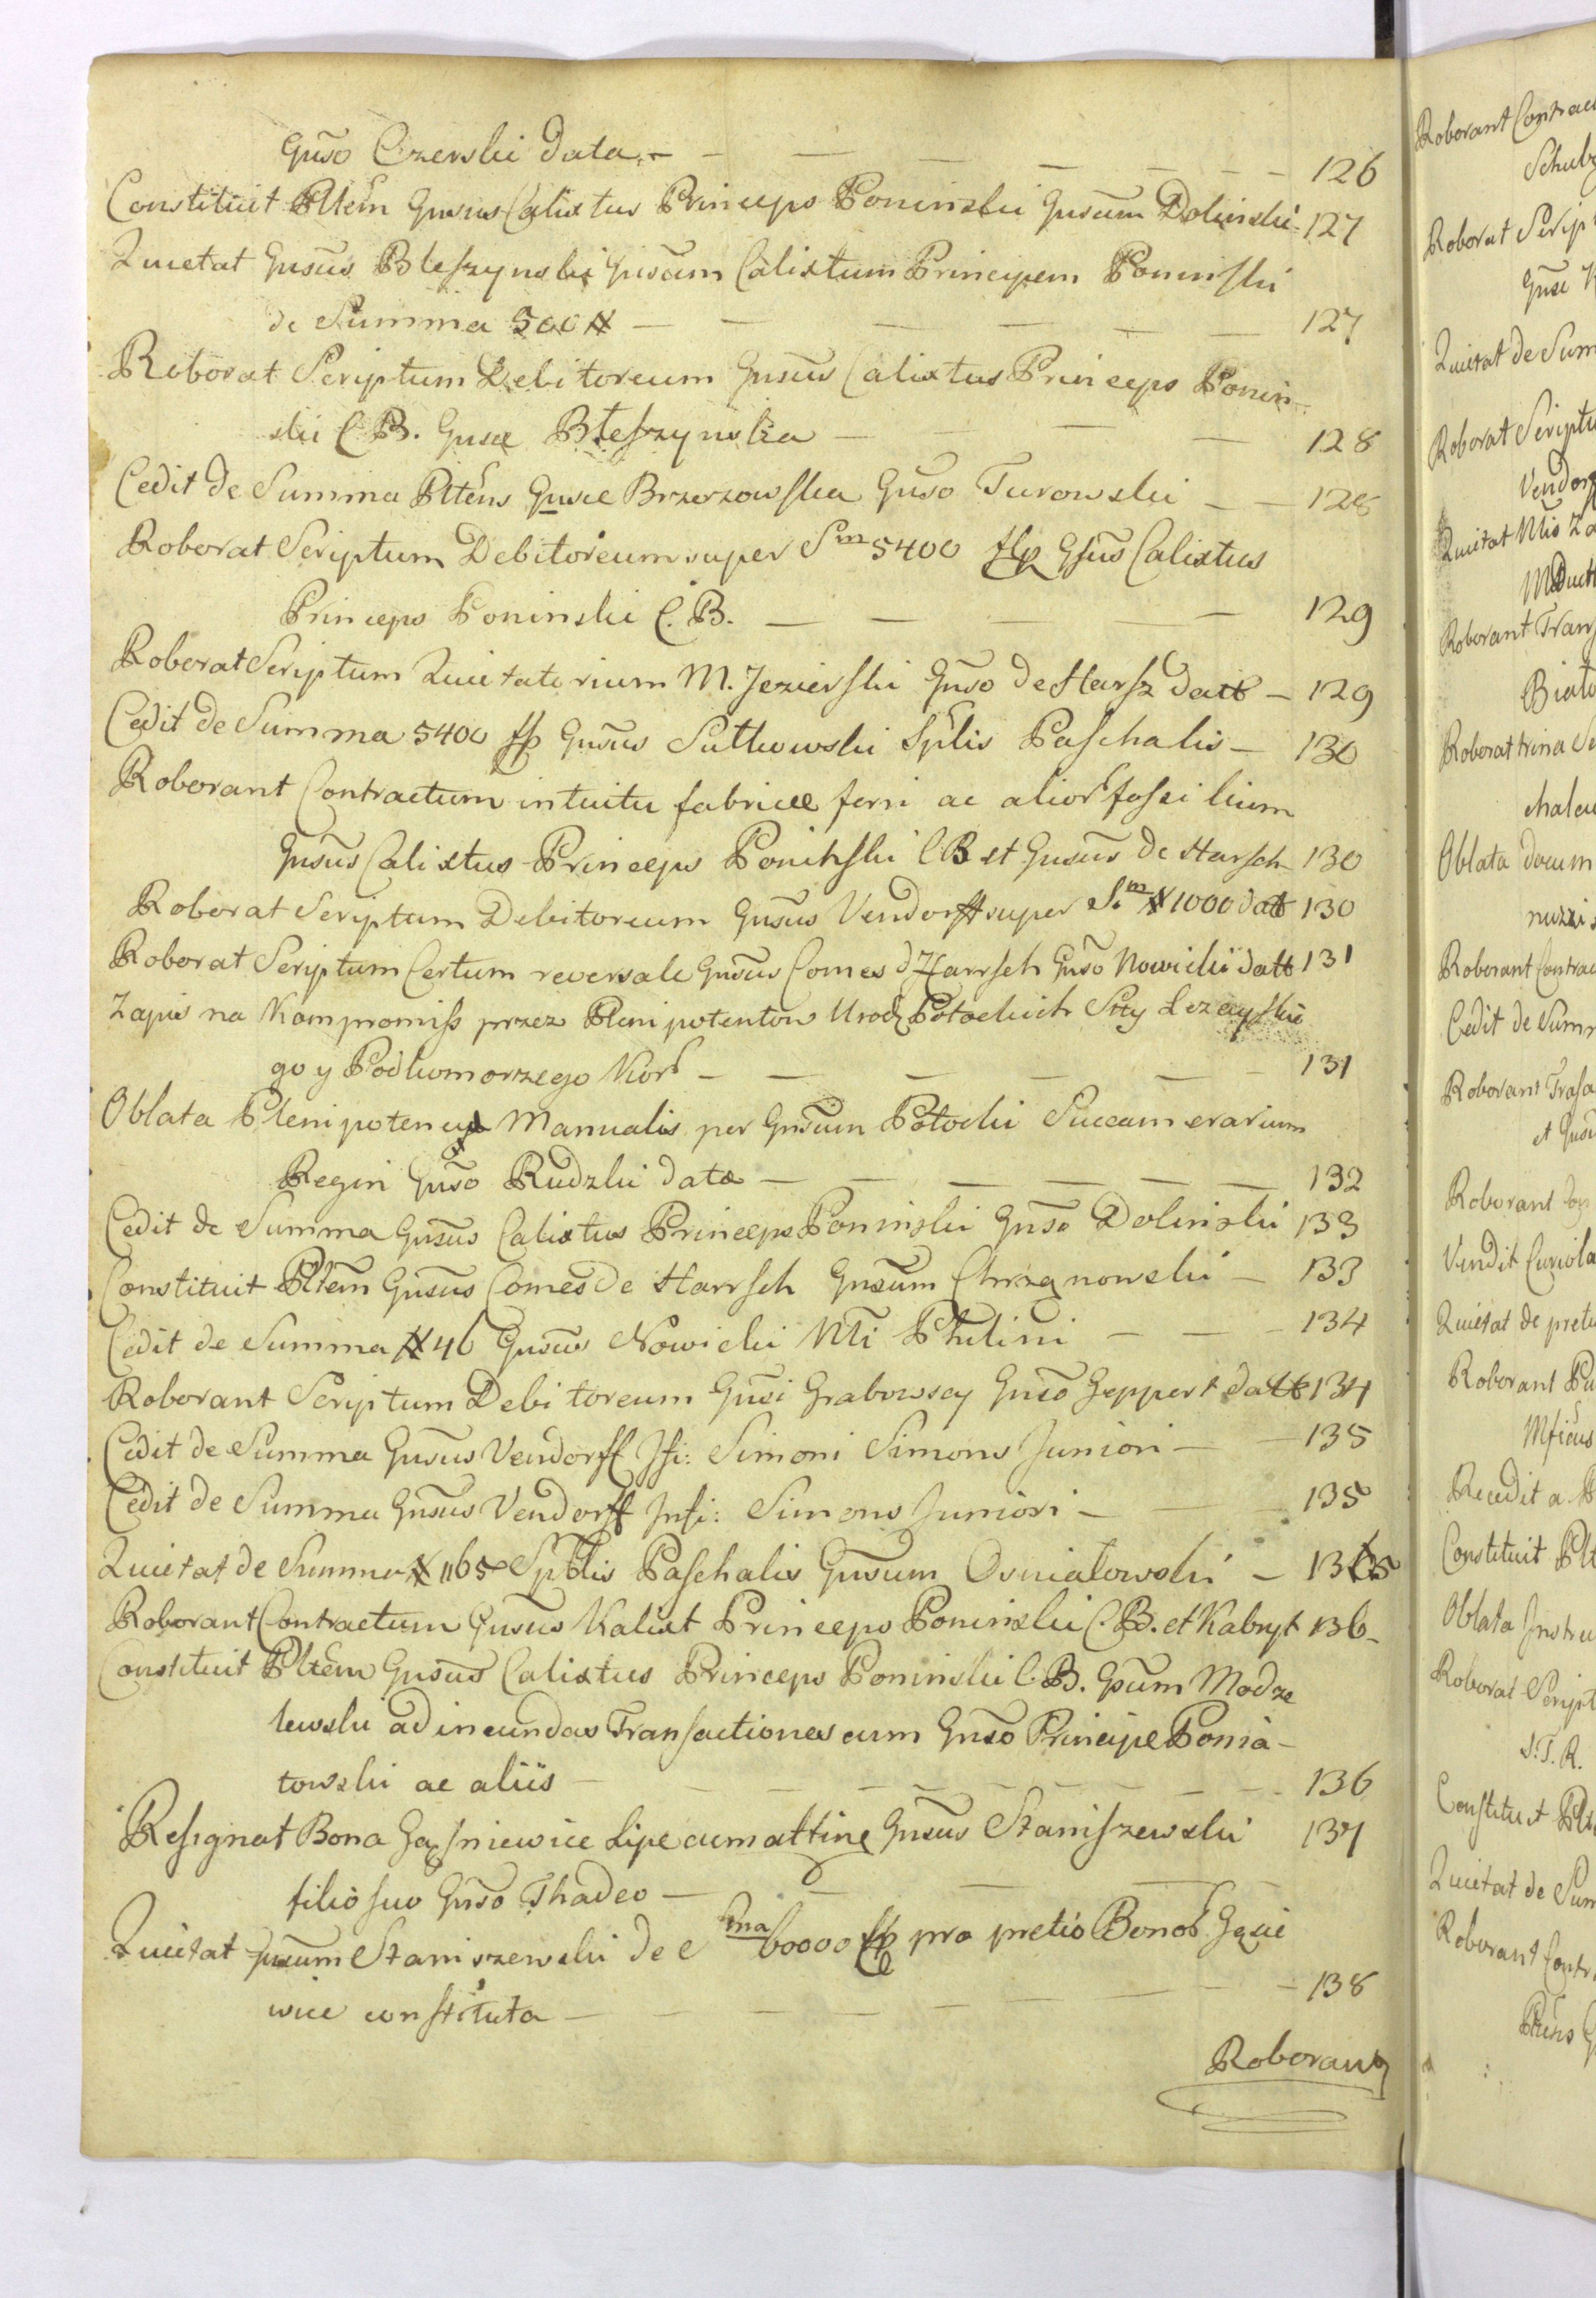 Gnso Czerski data — 126
Constituit Pltem Gnsus Calixtus Princeps Poninski Gnsum Dolinski 127
Quietat Gnsus Bleszynski Gnsum Calixtum Principem Poninski
de Summa 500 # — 127
Roborat Scriptum Debitoreum Gnsus Calixtus Princeps Ponin-
ski C. B. Gnsæ Błeszynska — 128
Cedit de Summa Pltens Gnsæ Brzezowska Gnso Turowski — 128
Roborat Scriptum Debitoreum super Sm 5400 flp Gsus Calixtus
Princeps Poninski C. B. — 129
Roborat Scriptum Quietatorium M. Jezierski Gnso de Harsz datt — 129
Cedit de Summa 5400 flp Gnsus Sutkowski Splis Paschalis — 130
Roborant Contractum intuitu fabricæ ferri ac alior fossilium
Gnsus Calixtus Princeps Poninski C B et Gnsus de Harsch 130
Roborat Scriptum Debitoreum Gnsus Vendorff super Sm # 1000 datt 130
Roborat Scriptum Certum reversale Gnsus Comes d Harrsch Gnso Nowicki datt 131
Zapis na Kompromiss przez Plenipotentow Urodz Potockich Stty Lezayski
go y Podkomorzego Kor — 131
Oblata Plenipotencyæ Manualis per Gnsum Potocki Succamerarium
Regni Gnso Rudzki datæ — 132
Cedit de Summa Gnsus Calixtus Princeps Poninski Gnso Dolinski 133
Constituit Pltem Gnsus Comes de Harrsch Gnsum Chrzanowski — 133
Cedit de Summa # 46 Gnsus Nowicki Ntti Philini — 134
Roborant Scriptum Debitoreum Gnsi Grabowscy Gnso Geppert datt 134
Cedit de Summa Gnsus Vendorff Jfi: Simoni Simons Juniori — 135
Cedit de Summa Gnsus Vendorff Jnfi: Simons Juniori — 135
Quietat de Summa # 1165 Spblis Paschalis Gnsum Osniałowski — 135
Roborant Contractum Gnsus Kalixt Princeps Poninski C. B. et Kabryt 136
Constituit Pltem Gnsus Calixtus Princeps Poninski C. B. Gsum Modze
lewski ad ineundas Transactiones cum Gnso Principe Ponia-
towski ac aliis — 136
Resignat Bona Lipe cum attine Gnsus Staniszewski 137
filio suo Gnso Thadeo —
Quietat Gnsum Staniszewski de Sma 60000 flp pro pretio Bonor
wice constituta — 138
Roborant
Roborant Contrac
Roborat Scrip
Quietat de Sum
Roborat Scriptu
Vendor
Roborant Trans
Roborat trina
Oblata docum
Roborant Contrac
Cedit de Summ
Roborant Transa
et Gnsu
Roborant
Vendit
Quietat de preti
Roborant
Recedit a
Constituit Plt
Oblata Instru
Roborat Script
S. T. R.
Constituit Plt
Quietat de Sum
Roborant Contr